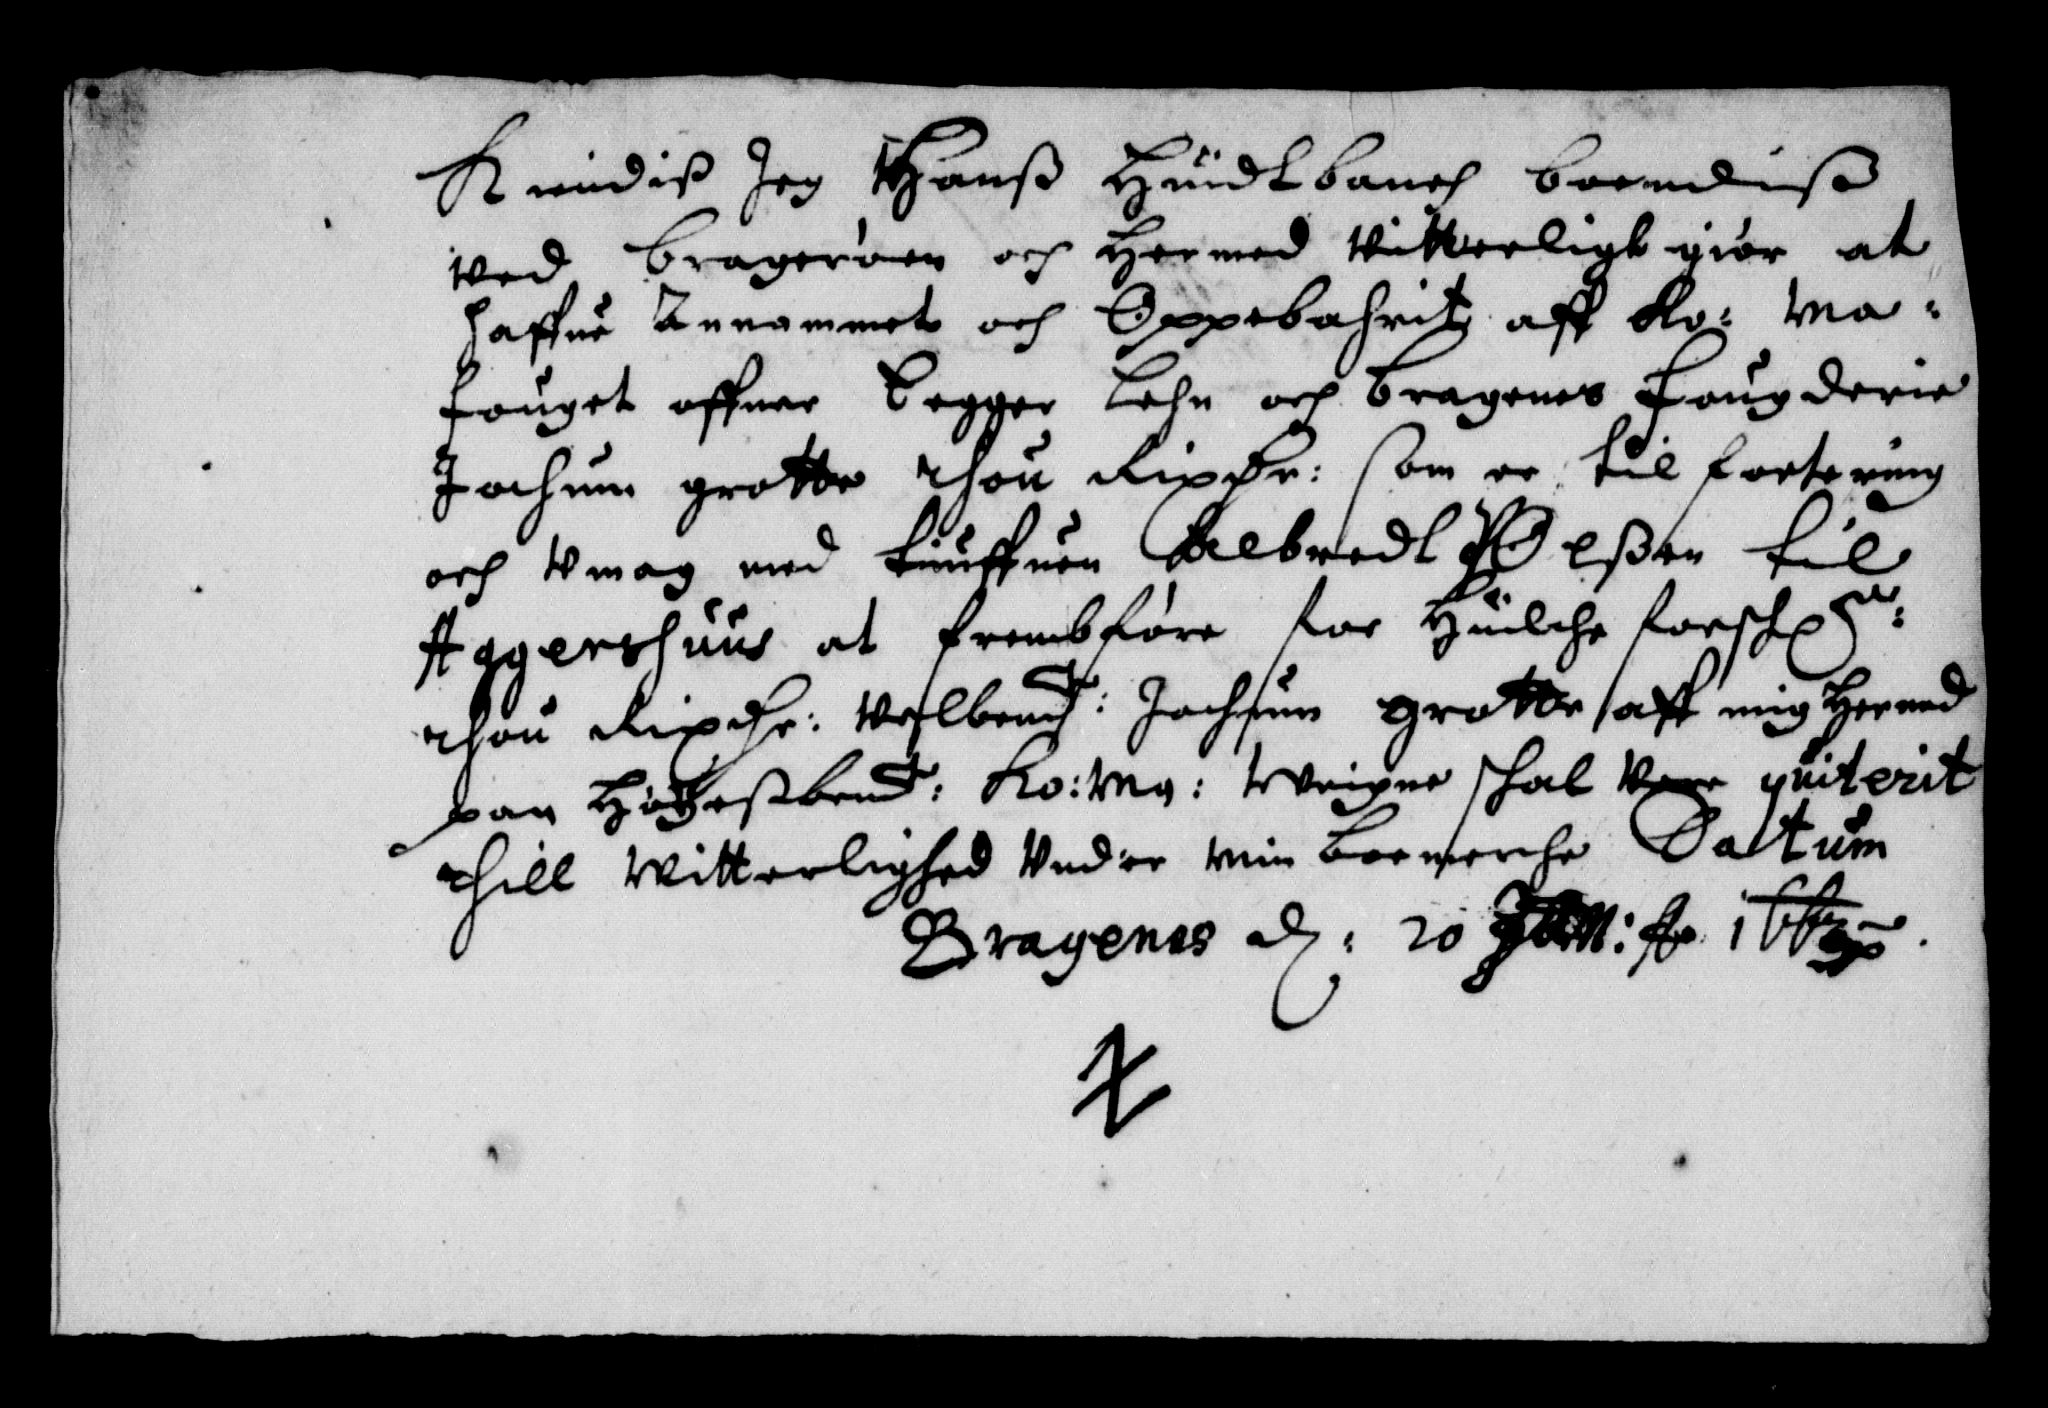 Kiendis Jeg Hanß Huidtbanch boendiß
ved bragerøen och Hermed Vitterligt giør at
haffue Annammet och Oppebahrit aff Ko: Ma:
fouget offuer Egger Lehn och bragenes fougderie
Jochum grotte thou Rixdr: som er til forterring
och Vmag med tiuffuen Albredt Olßen til
Aggershuus at frembføre for Huilche forsch:ne
thou Rixdr: Velbemt: Jochum grotte aff mig Hermed
paa Høyestbemt: Ko: Ma: Weigne schal Vere quiterit
thill Witterlighed Under min boemerche Datum
Bragenes d: 20